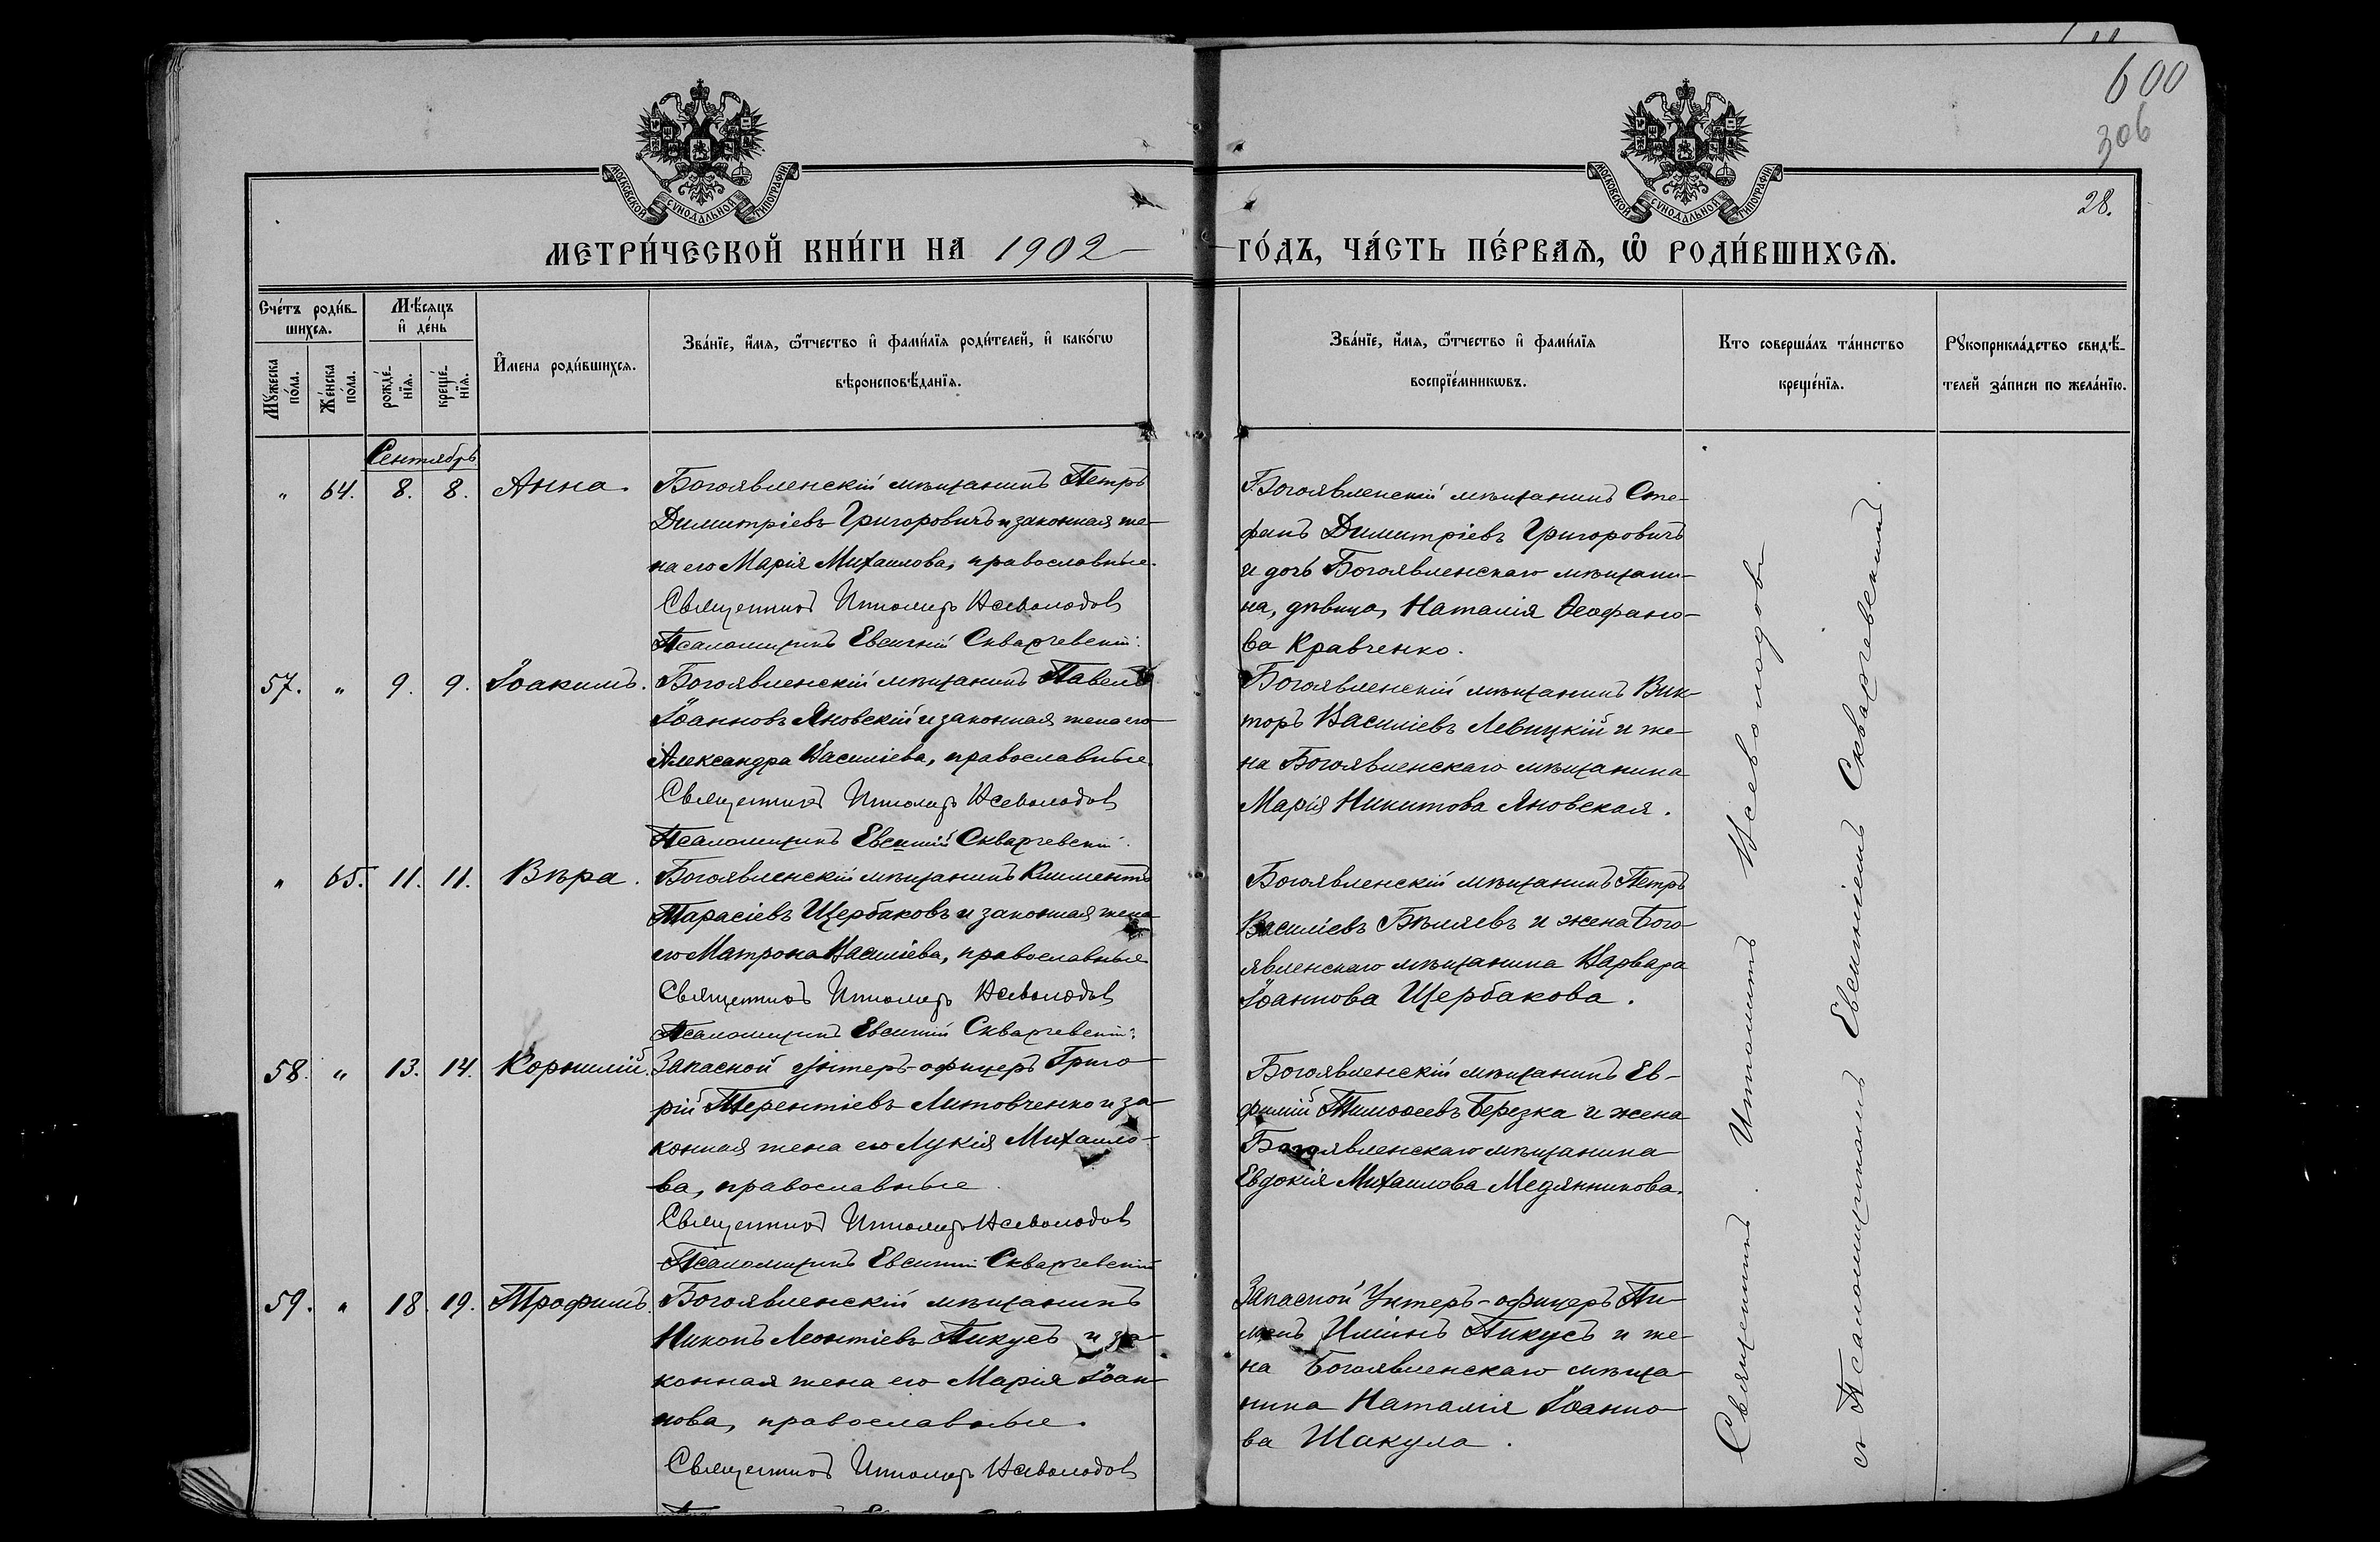 600
306
28.
МОСКОВСКОЙ СУНОДАЛЬНОЙ ТИПОГРАФІИ
МОСКОВСКОЙ СУНОДАЛЬНОЙ ТИПОГРАФІИ
МЕТРИ́ЧЕСКОЙ КНИ́ГИ НА 1902
ГО́ДЪ, ЧА́СТЬ ПЕ́РВАЯ, Ѽ РОДИ́ВШИХСЯ.
Сче́тъ роди́в-
шихся.
Мꙋ́жеска по́ла.
Же́нска по́ла.
Мѣ́сяцъ
и҆ де́нь
рожде́-нїя.
креще́-нїя.
И҆мена роди́вшихся.
Зва́нїе, и҆́мя, ѻ҆́тчество и҆ фами́лїя роди́телей, и҆ како́гѡ
вѣроисповѣ́данїя.
Зва́нїе, и҆́мя, ѻ҆́тчество и҆ фами́лїя
воспрїе́мникѡвъ.
Кто соверша́лъ та́инство
креще́нїя.
Рꙋкоприкла́дство свидѣ́-
телей за́писи по жела́нїю.
Сентябрь
" 64. 8. 8. Анна.
Богоявленскій мѣщанинъ Петръ
Димитріевъ Григоровичъ и законная же-
на его Марія Михаилова, православные.
Священникъ Ипполитъ Всеволодовъ
Псаломщикъ Евсигній Скваржевскій.
Богоявленскій мѣщанинъ Сте-
фанъ Димитріевъ Григоровичъ
и дочь Богоявленскаго мѣщани-
на, дѣвица, Наталія Ѳеофано-
ва Кравченко.
57. " 9. 9. Іоакимъ.
Богоявленскій мѣщанинъ Павелъ
Іоанновъ Яновскій и законная жена его
Александра Василіева, православные
Священникъ Ипполитъ Всеволодовъ
Псаломщикъ Евсигній Скваржевскій.
Богоявленскій мѣщанинъ Вик-
торъ Василіевъ Левицкій и же-
на Богоявленскаго мѣщанина
Марія Никитова Яновская.
" 65. 11. 11. Вѣра.
Богоявленскій мѣщанинъ Климентъ
Тарасіевъ Щербаковъ и законная жена
его Матрона Василіева, православные
Священникъ Ипполитъ Всеволодовъ
Псаломщикъ Евсигній Скваржевскій.
Богоявленскій мѣщанинъ Петръ
Василіевъ Бѣляевъ и жена Бого-
явленскаго мѣщанина Варвара
Іоаннова Щербакова.
58. " 13. 14. Корнилій.
Запасной унтеръ-офицеръ Григо-
рій Терентіевъ Литовченко и за-
конная жена его Лукія Михаило-
ва, православные
Священникъ Ипполитъ Всеволодовъ
Псаломщикъ Евсигній Скваржевскій
Богоявленскій мѣщанинъ Ев-
фимій Тимоѳеевъ Березка и жена
Богоявленскаго мѣщанина
Евдокія Михаилова Медянникова.
59. " 18. 19. Трофимъ.
Богоявленскій мѣщанинъ
Никонъ Леонтіевъ Пикусъ и за-
конная жена его Марія Іоан-
нова, православные.
Священникъ Ипполитъ Всеволодовъ
Запасной Унтеръ-офицеръ Пи-
менъ Иліинъ Пикусъ и же-
на Богоявленскаго мѣща-
нина Наталія Іоанно-
ва Шакула.
Священникъ Ипполитъ Всеволодовъ
съ Псаломщикомъ Евсигніемъ Скваржевскимъ.